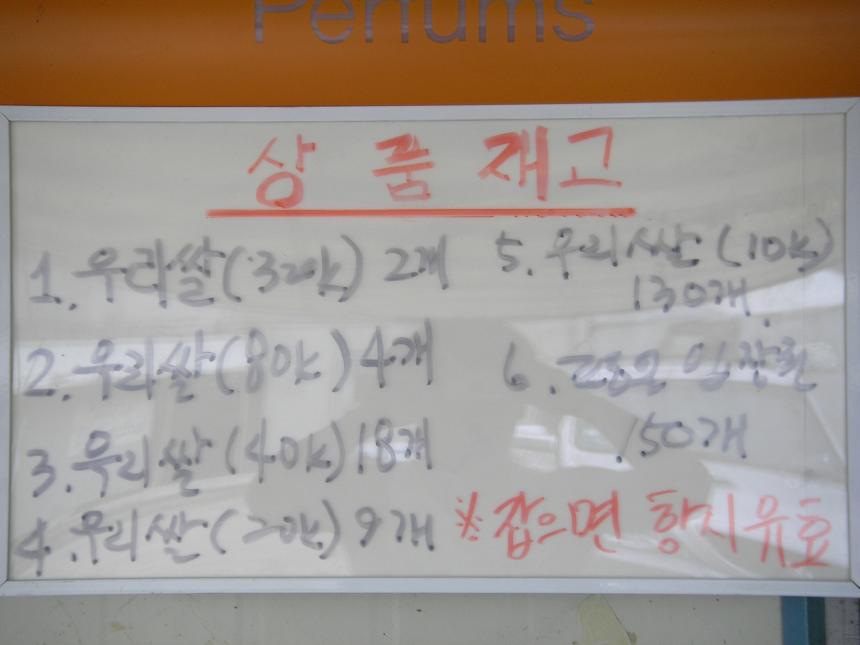 Perfums
상품재고
1. 우리쌀(320k) 2개
2. 우리쌀(80k) 4개
3. 우리쌀(40k) 18개
4. 우리쌀(20k) 9개
5. 우리쌀(10k)
130개
6. 입장권
150개
※잡으면 항시유효